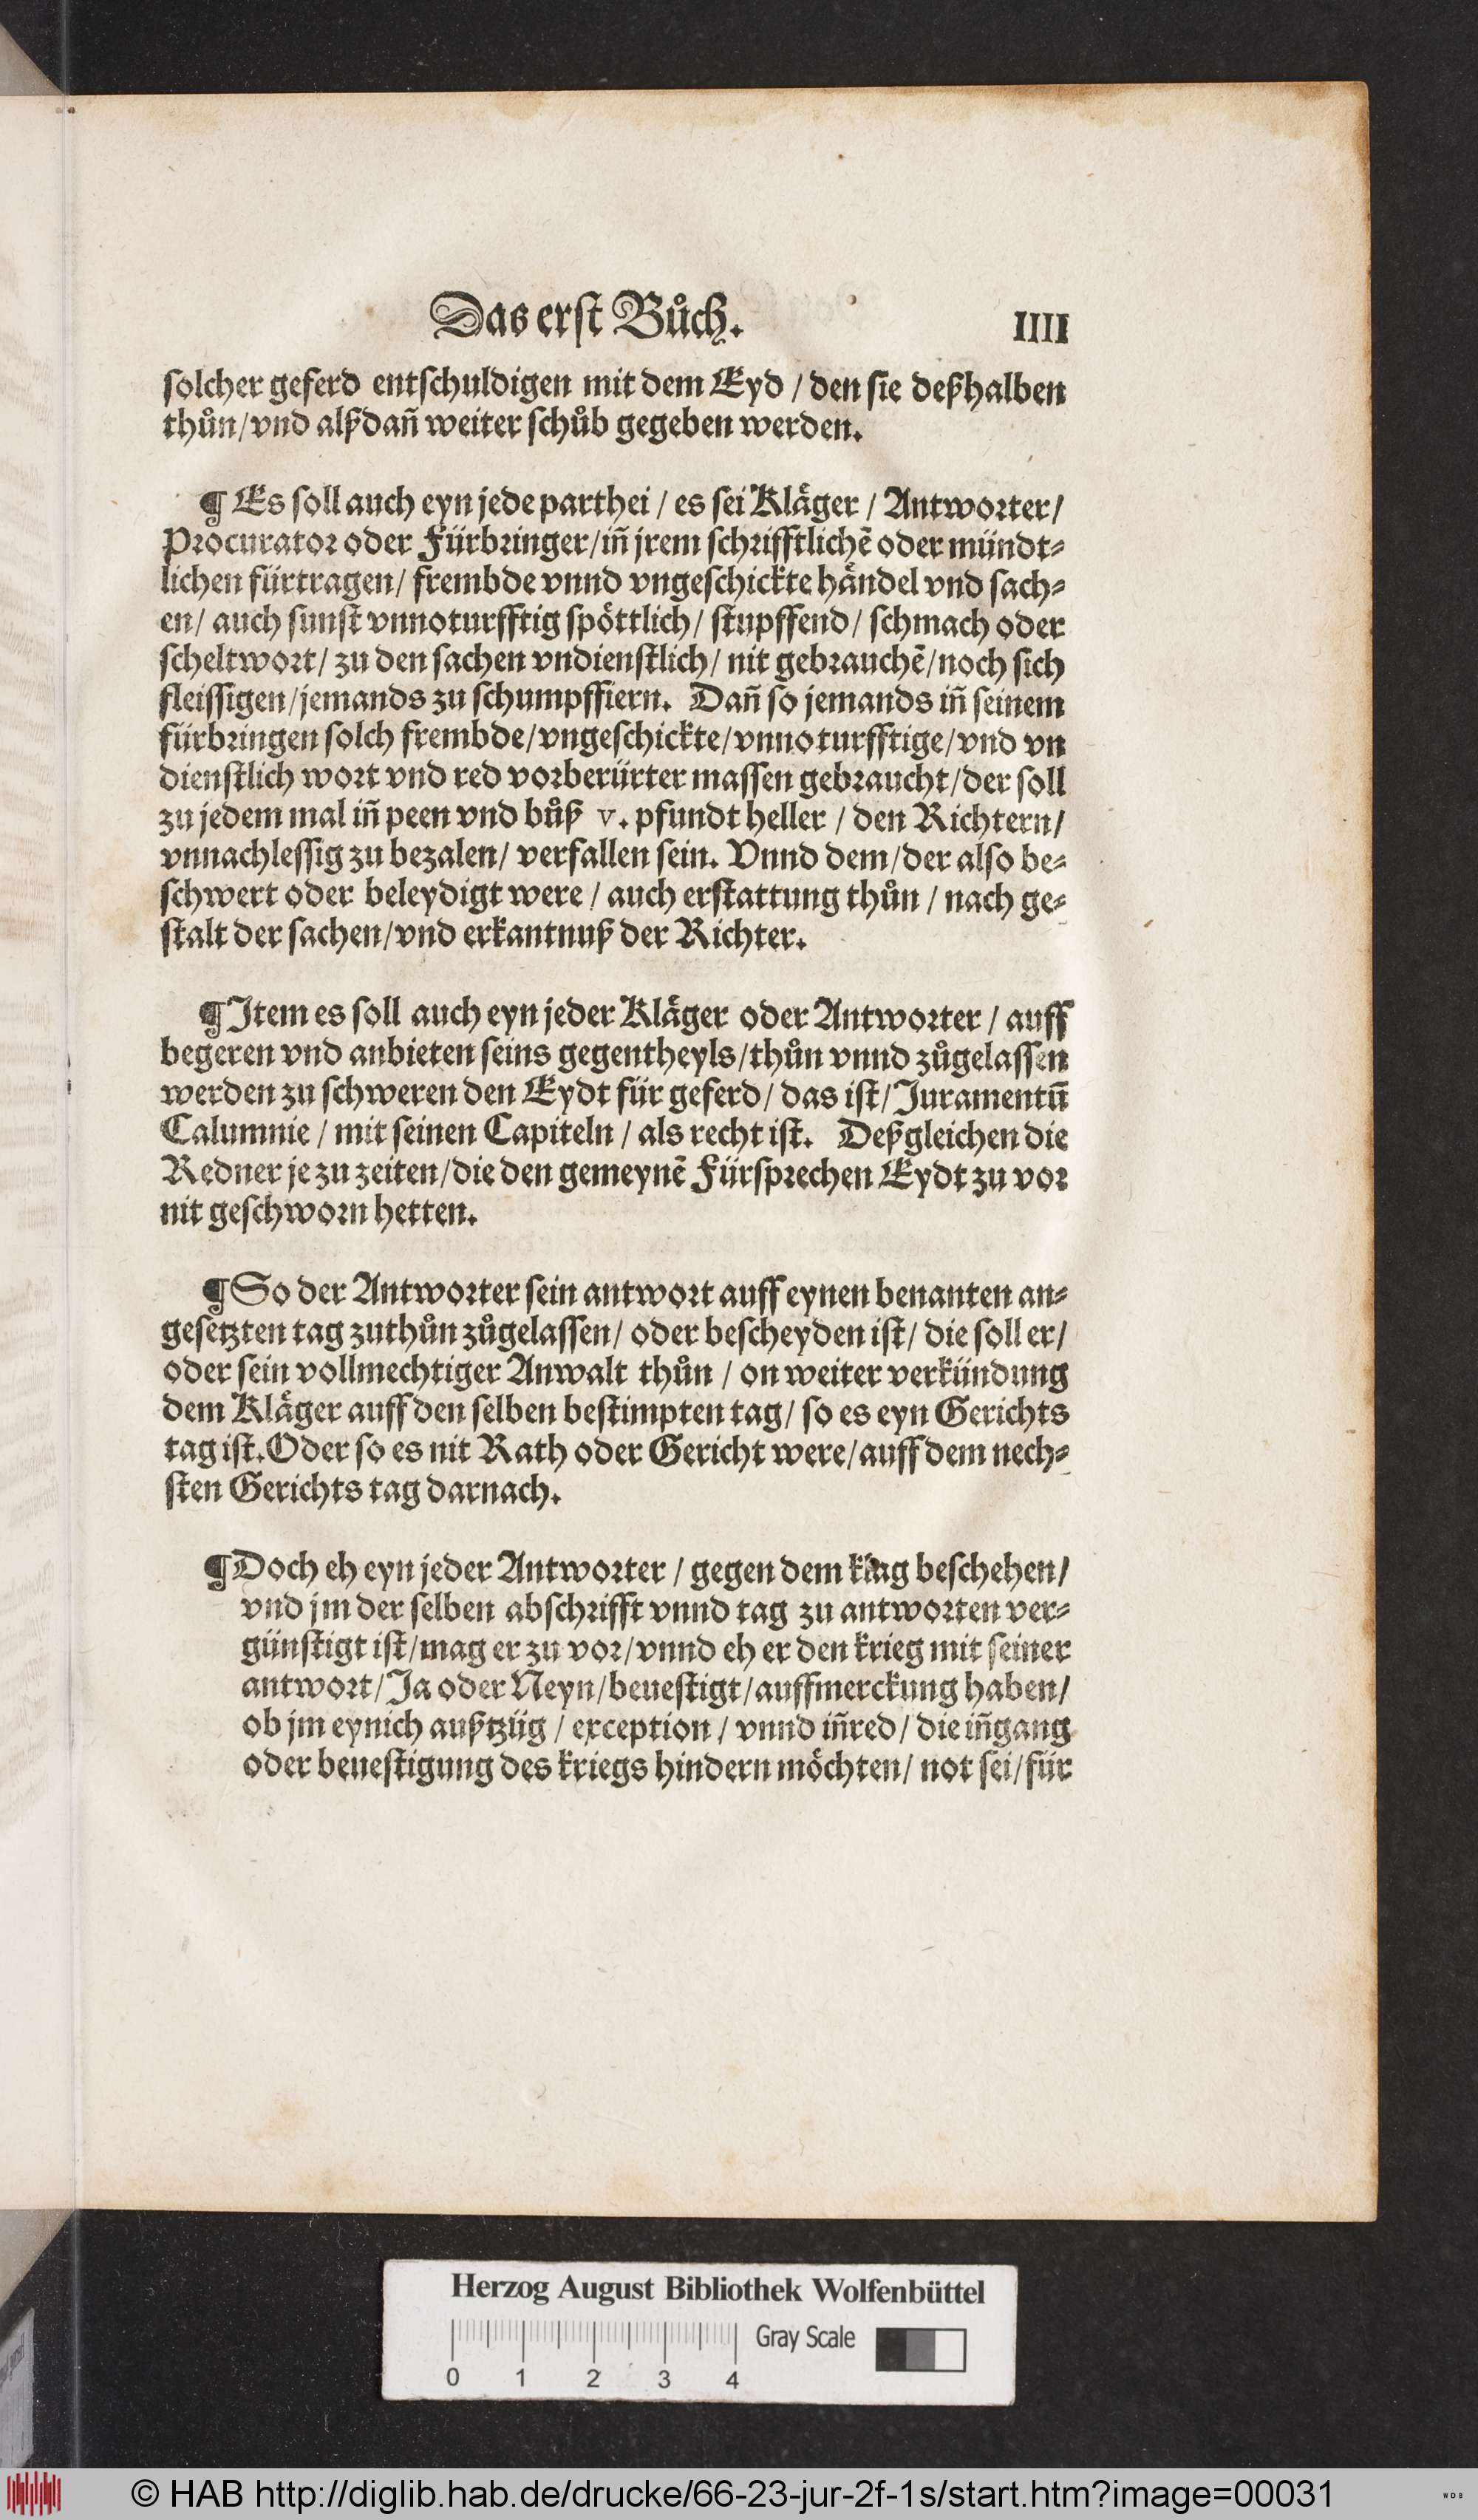 Das erst Bůch.
IIII
solcher geferd entschuldigen mit dem Eyd / den sie deßhalben
thůn/vnd alßdañ weiter schůb gegeben werden.
¶ Es soll auch eyn jede parthei / es sei Kläger / Antworter/
Procurator oder Fürbringer/iñ jrem schrifftlichẽ oder mündt-
lichen fürtragen/ frembde vnnd vngeschickte händel vnd sach-
en/ auch sunst vnnoturfftig spöttlich/ stupffend/ schmach oder
scheltwort/ zu den sachen vndienstlich/ nit gebrauchẽ/noch sich
fleissigen/jemands zu schumpffiern. Dañ so jemands iñ seinem
fürbringen solch frembde/vngeschickte/vnnoturfftige/vnd vn
dienstlich wort vnd red vorberürter massen gebraucht/der soll
zu jedem mal iñ peen vnd bůß v. pfundt heller / den Richtern/
vnnachlessig zu bezalen/ verfallen sein. Vnnd dem/der also be-
schwert oder beleydigt were / auch erstattung thůn / nach ge-
stalt der sachen/vnd erkantnuß der Richter.
¶ Item es soll auch eyn jeder Kläger oder Antworter / auff
begeren vnd anbieten seins gegentheyls/thůn vnnd zůgelassen
werden zu schweren den Eydt für geferd/ das ist/Juramentũ
Calumnie / mit seinen Capiteln / als recht ist. Deßgleichen die
Redner je zu zeiten/die den gemeynẽ Fürsprechen Eydt zu vor
nit geschworn hetten.
¶ So der Antworter sein antwort auff eynen benanten an-
gesetzten tag zuthůn zůgelassen/ oder bescheyden ist/ die soll er/
oder sein vollmechtiger Anwalt thůn / on weiter verkündung
dem Kläger auff den selben bestimpten tag/ so es eyn Gerichts
tag ist. Oder so es nit Rath oder Gericht were/auff dem nech-
sten Gerichts tag darnach.
¶ Doch eh eyn jeder Antworter / gegen dem klag beschehen/
vnd jm der selben abschrifft vnnd tag zu antworten ver-
günstigt ist/mag er zu vor/vnnd eh er den krieg mit seiner
antwort/Ja oder Neyn/beuestigt/auffmerckung haben/
ob jm eynich außtzüg / exception / vnnd iñred/ die iñgang
oder beuestigung des kriegs hindern möchten/ not sei/für
Herzog August Bibliothek Wolfenbüttel
Gray Scale
0 1 2 3 4
© HAB http://diglib.hab.de/drucke/66-23-jur-2f-1s/start.htm?image=00031
WDB